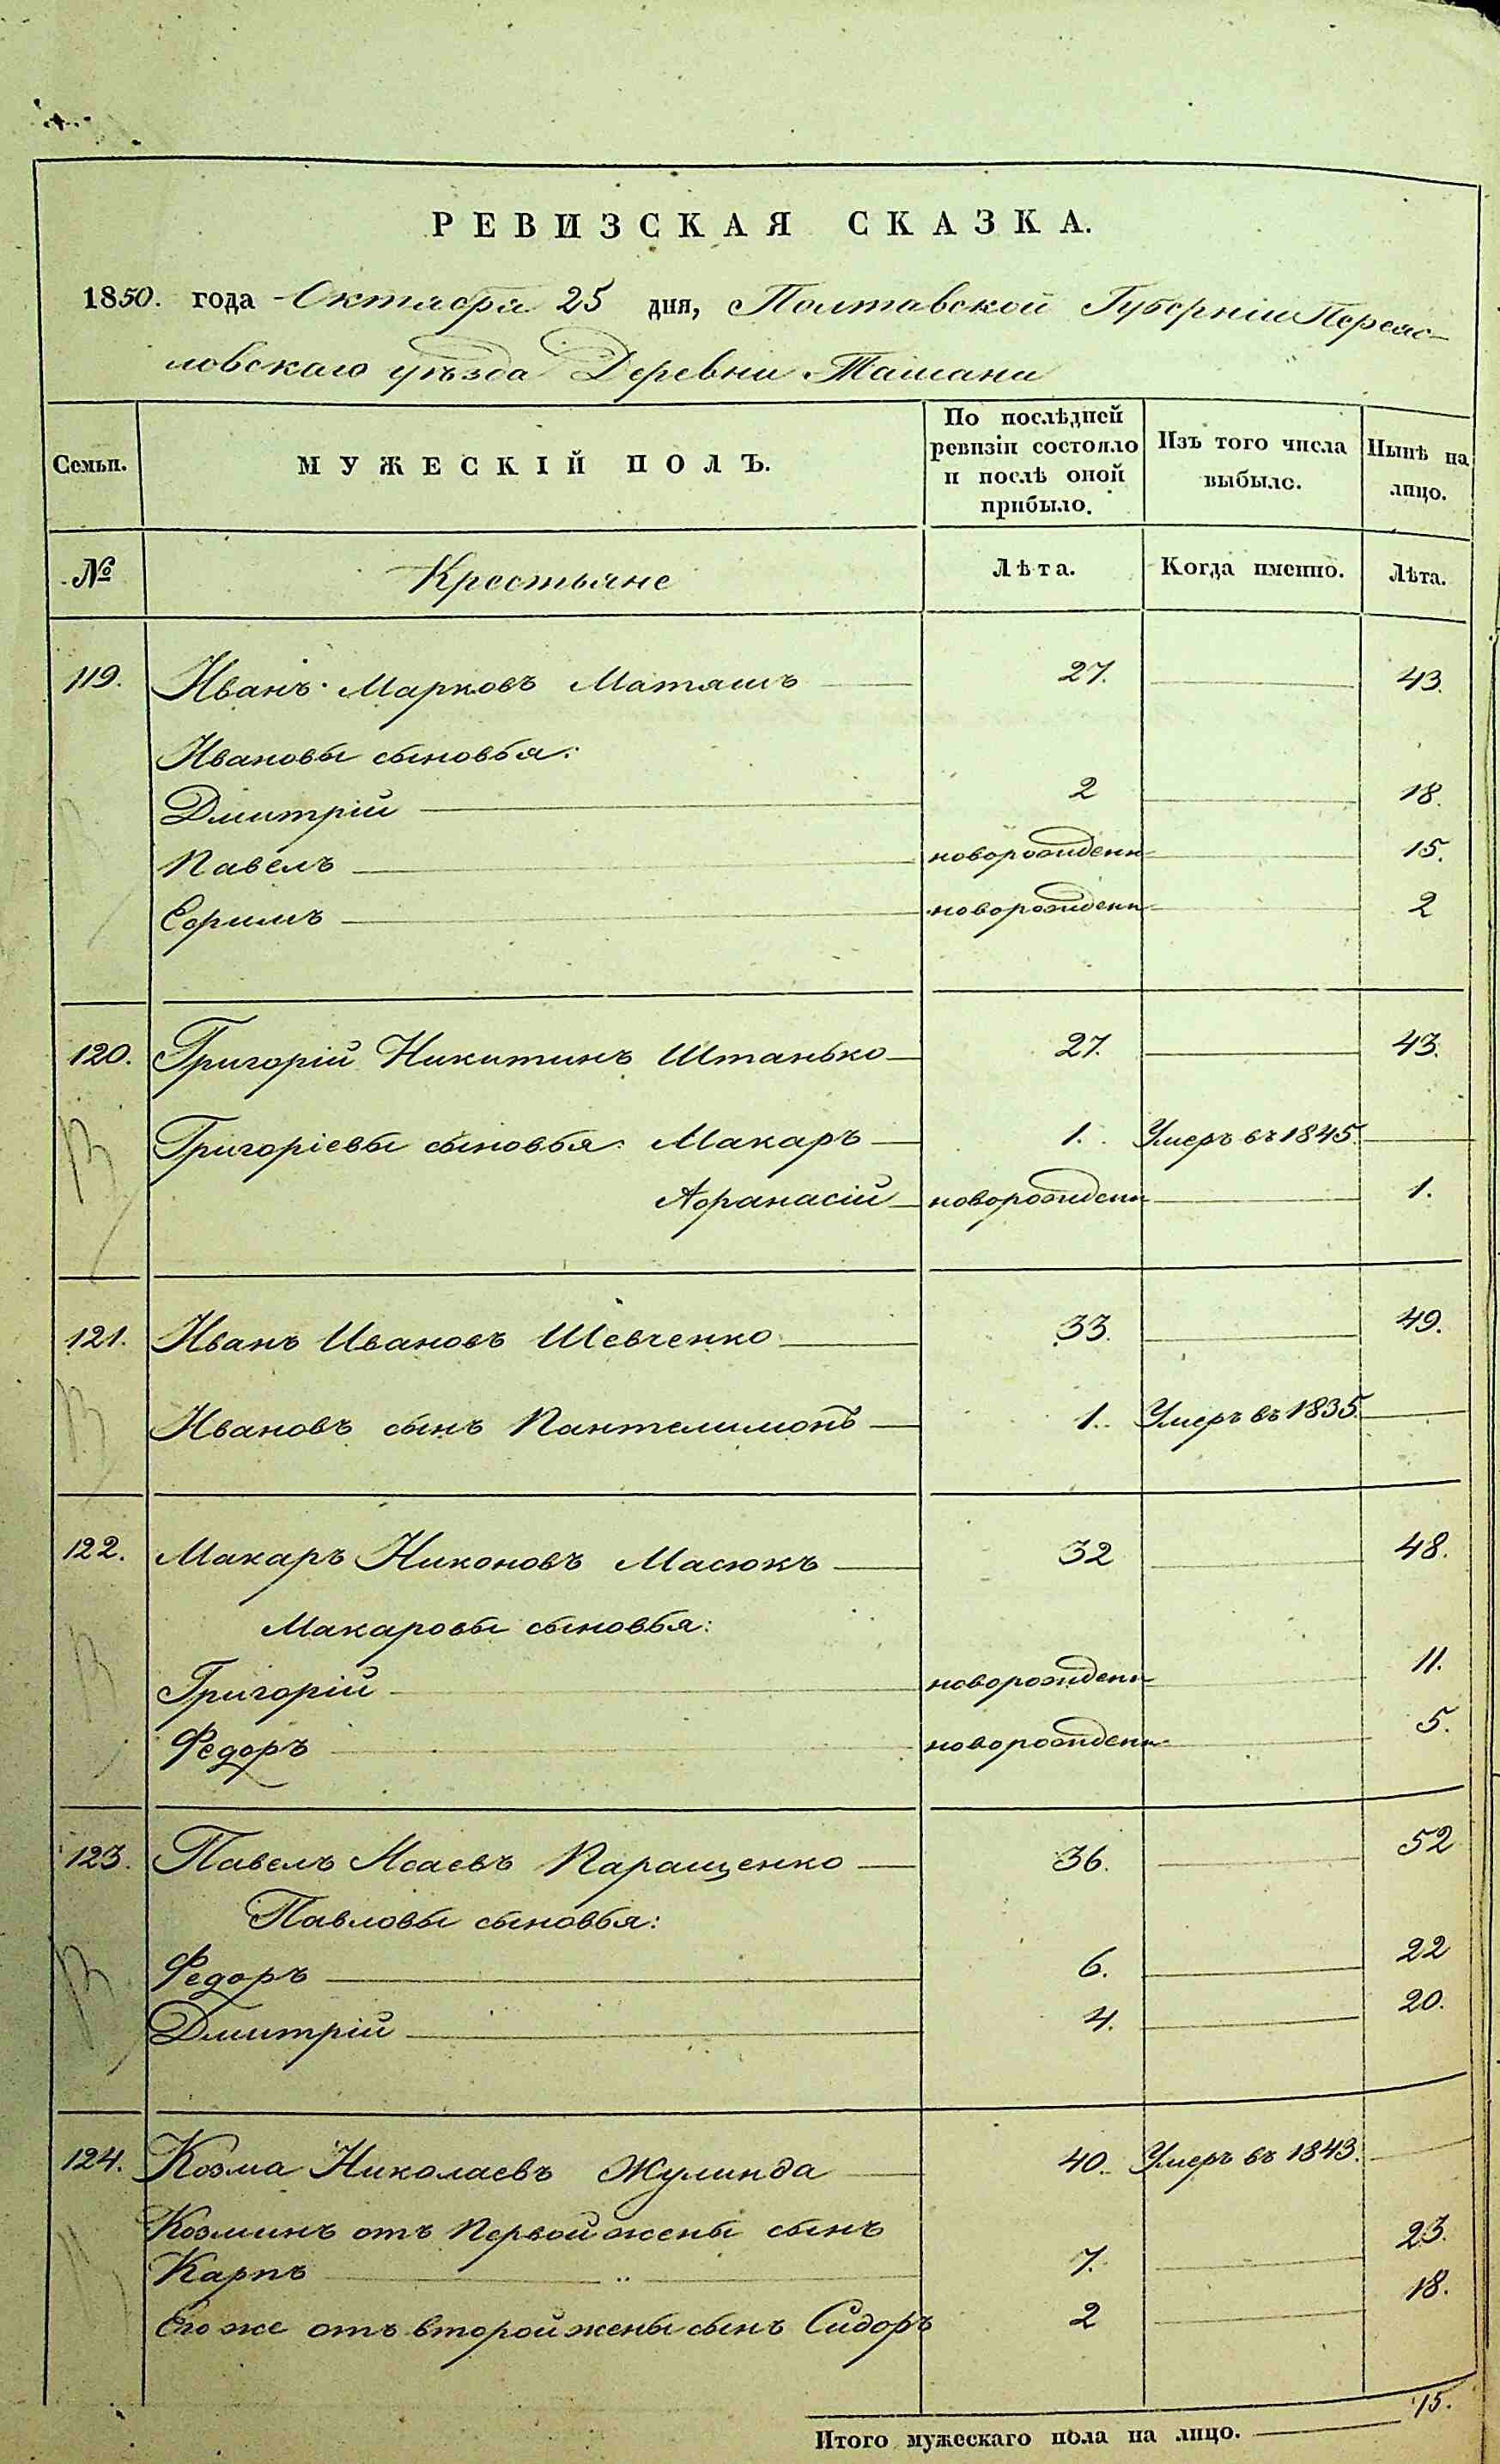 РЕВИЗСКАЯ СКАЗКА.
1850. года Октября 25 дня, Полтавской Губерніи Переяс-
ловскаго уѣзда Деревни Ташани
Семьи. МУЖЕСКІЙ ПОЛЪ. По послѣдней ревизіи состояло и послѣ оной прибыло. Изъ того числа выбыло. Нынѣ на лицо.
№ Крестьяне Лѣта. Когда именно. Лѣта.
119. Иванъ Марковъ Маташъ 27. 43.
Ивановы сыновья:
Дмитрій 2 18.
Павелъ новорожденн 15.
Ефимъ новорожденн 2
120. Григорій Никитинъ Штанько 27. 43.
Григоріевы сыновья: Макаръ 1. Умеръ въ 1845.
Афанасій новорожденн 1.
121. Иванъ Ивановъ Шевченко 33. 49.
Ивановъ сынъ Пантелимонъ 1. Умеръ въ 1835.
122. Макаръ Никоновъ Масюкъ 32 48.
Макаровы сыновья:
Григорій новорожденн 11.
Федоръ новорожденн 5.
123. Павелъ Исаевъ Паращенко 36. 52
Павловы сыновья:
Федоръ 6. 22
Дмитрій 4. 20.
124. Козма Николаевъ Жулинда 40. Умеръ въ 1843.
Козминъ отъ Первой жены сынъ
Карпъ 7. 23.
Его же отъ второй жены сынъ Сидоръ 2 18.
Итого мужескаго пола на лицо. 15.